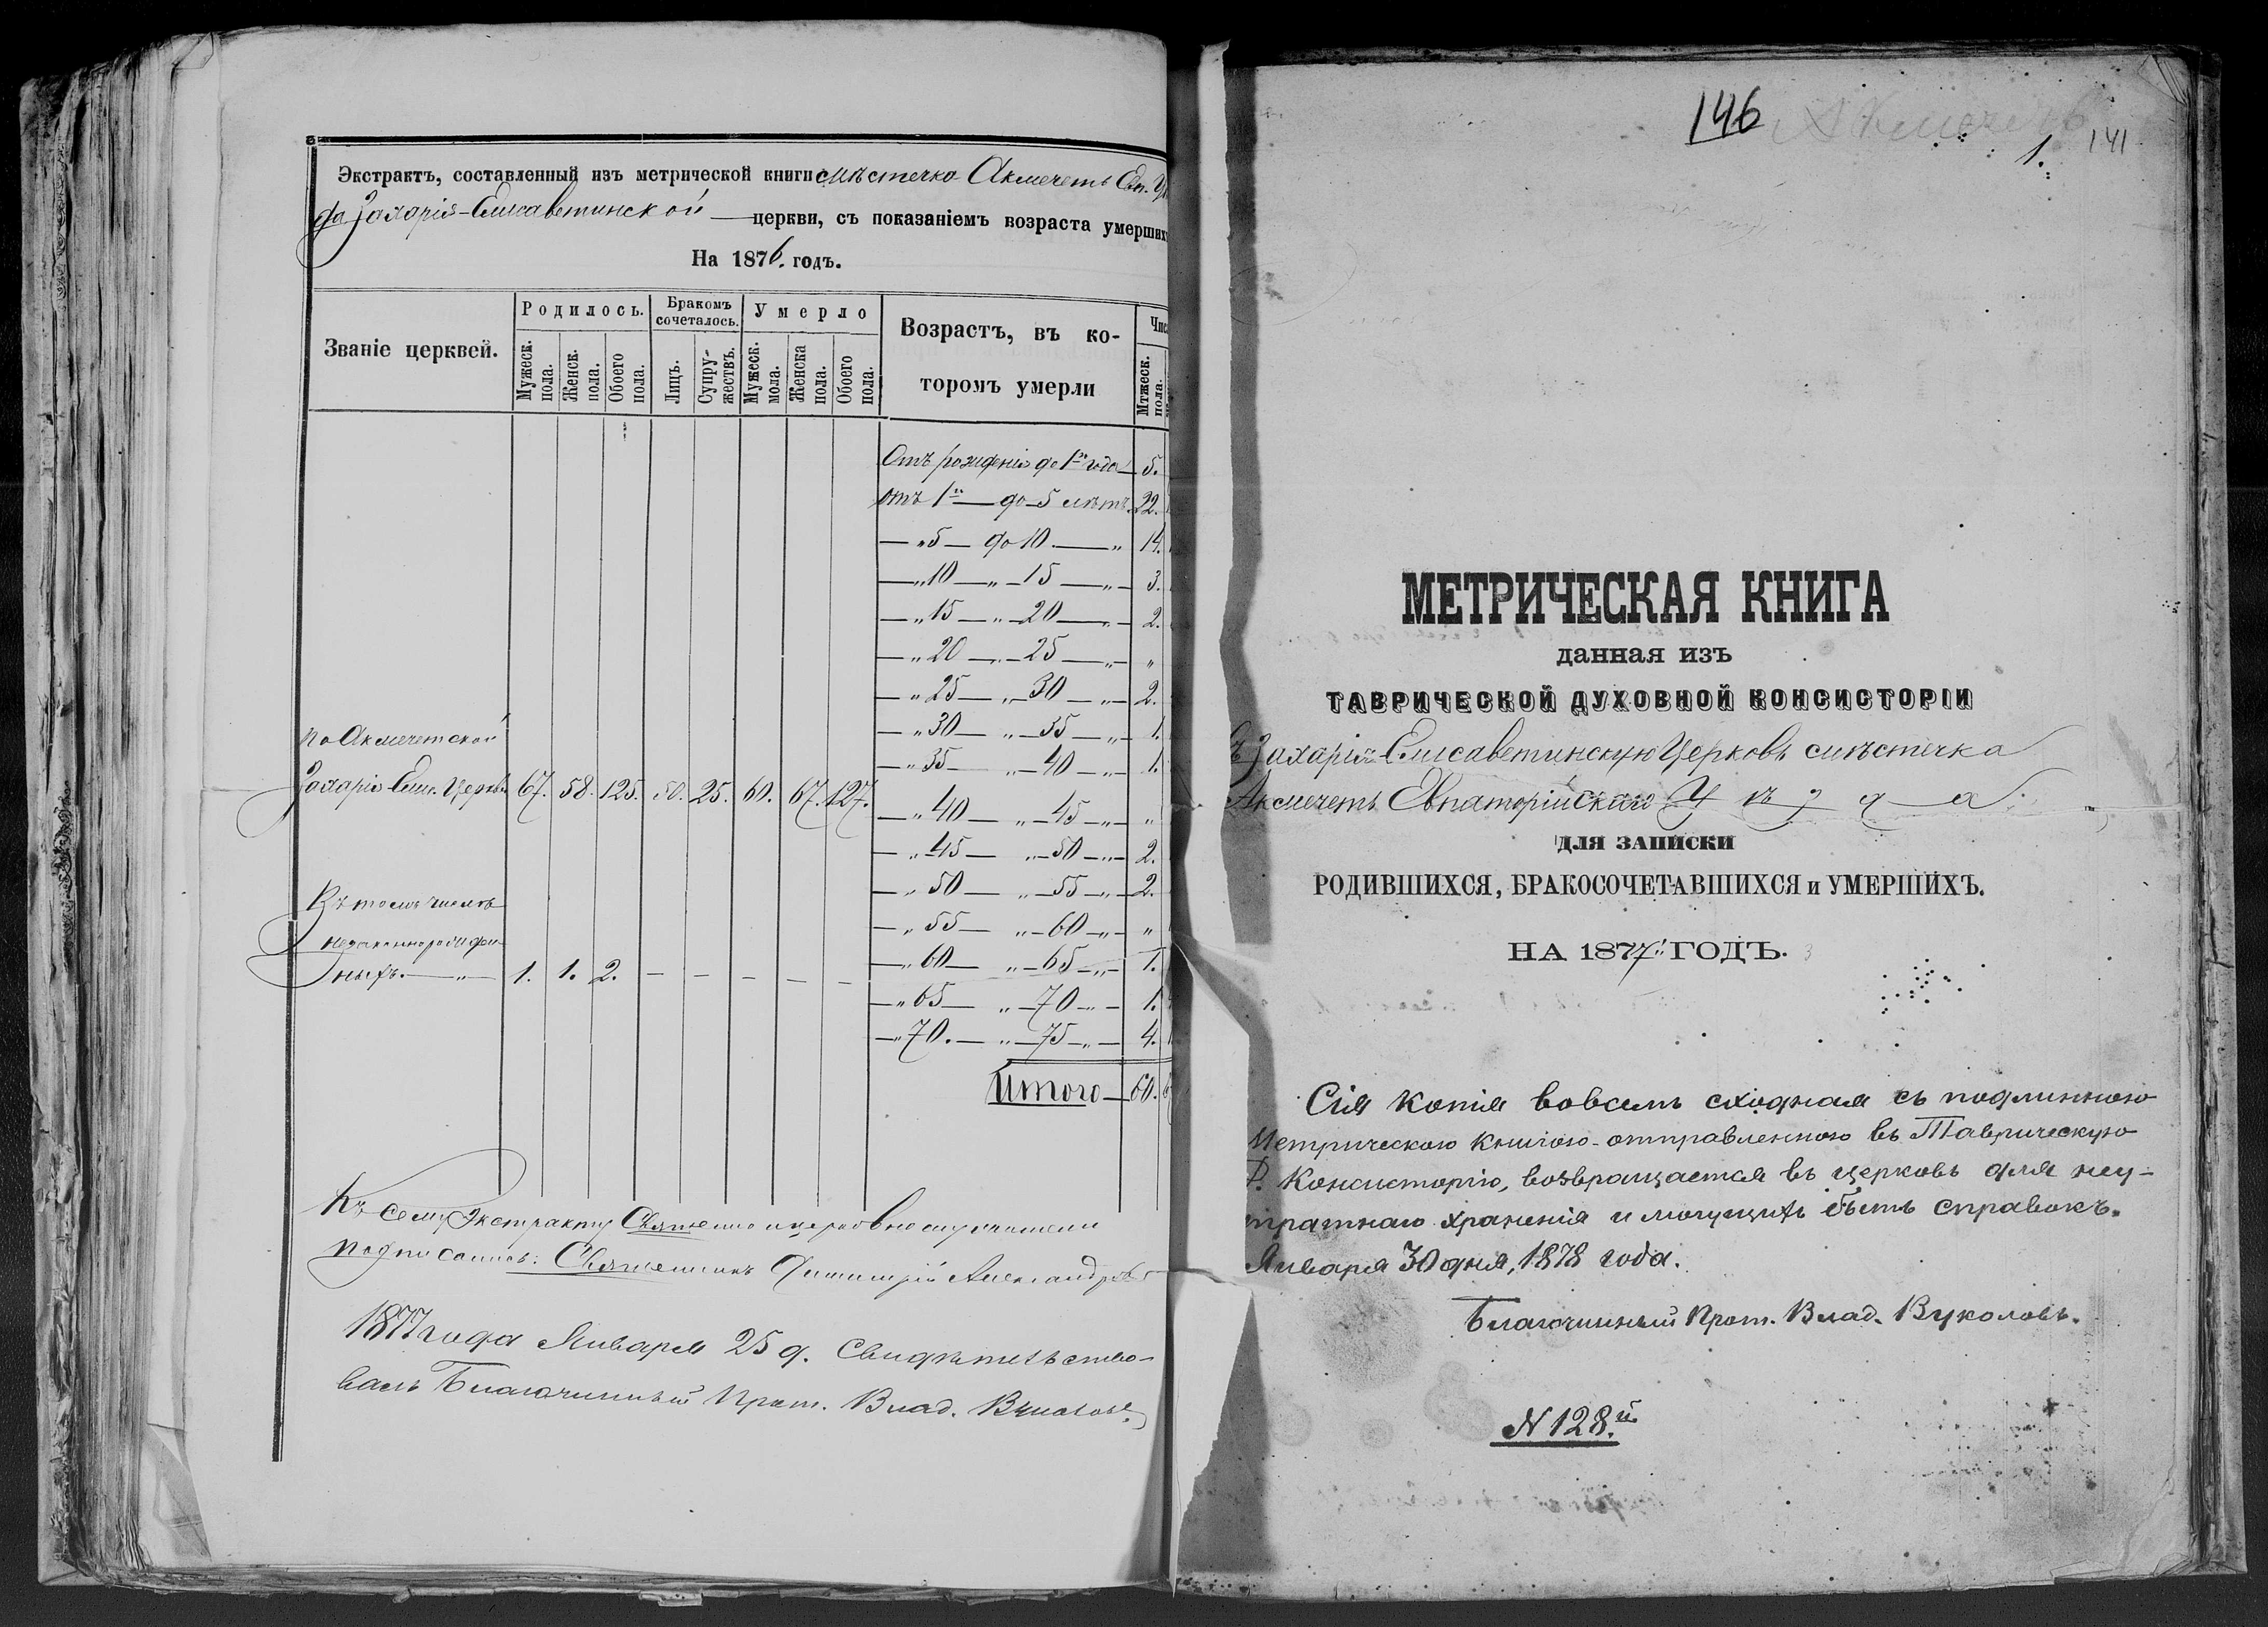 Экстрактъ, составленный изъ метрической книги мѣстечка Акмечеть Евп. Уѣ
да Захаріе-Елисаветинской церкви, съ показаніемъ возраста умершихъ
На 1876. годъ.
Званіе церквей.
Родилось.
Бракомъ сочеталось.
Умерло
Возрастъ, въ ко-
торомъ умерли
Чис
Мужеск. пола.
Женск. пола.
Обоего пола.
Лицъ.
Супру-жествъ.
Мужеск. мола.
Женска пола.
Обоего пола.
Мтжеск. пола.
Отъ рожденія до 1го года 5.
отъ 1го — до 5 лѣтъ 22.
— „ 5 — до 10 — „ 14.
— „ 10 — „ — 15 — „ — 3.
— „ 15 — „ — 20 — „ — 2.
— „ 20 — „ — 25 — „ — „
— „ 25 — „ — 30 — „ — 2.
— „ 30 — „ — 35 — „ 1.
— „ 35 — „ — 40 — „ — 1.
— „ 40 — „ — 45 — „ — „
— „ 45 — „ — 50 — „ — 2.
— „ 50 — „ — 55 — „ — 2.
— „ 55 — „ — 60 — „ — „
— „ 60 — „ — 65 — „ 1.
— „ 65 — „ — 70 — „ — 1.
— „ 70. — „ — 75 — „ — 4.
Итого — 60.
по Акмечетской
Захаріе Елис. Церкви 67. 58. 125. 50. 25. 60. 67. 127.
Въ томъ числѣ
незаконнорожден
ныхъ. — „ — 1. 1. 2. — — — — —
Къ сему Экстракту Священно и церковнослужители
подписались: Священникъ Димитрій Александровъ
1877 года Января 25 д. Свидѣтельство-
валъ Благочинный Прот. Влад. Вуколовъ.
146
Акмечеть
1.
141
МЕТРИЧЕСКАЯ КНИГА
данная изъ
ТАВРИЧЕСКОЙ ДУХОВНОЙ КОНСИСТОРІИ
въ Захаріе-Елисаветинскую Церковь мѣстечка
Акмечеть Евпаторійскаго Уѣзда
ДЛЯ ЗАПИСКИ
РОДИВШИХСЯ, БРАКОСОЧЕТАВШИХСЯ и УМЕРШИХЪ.
НА 1877й ГОДЪ.
Сія копія вовсемъ сходная съ подлинною
Метрическою книгою отправленною въ Таврическую
Д. Консисторію, возвращается въ церковь для неу-
тратнаго храненія и могущихъ быть справокъ.
Января 30 дня, 1878 года.
Благочинный Прот. Влад. Вуколовъ.
N 128.й